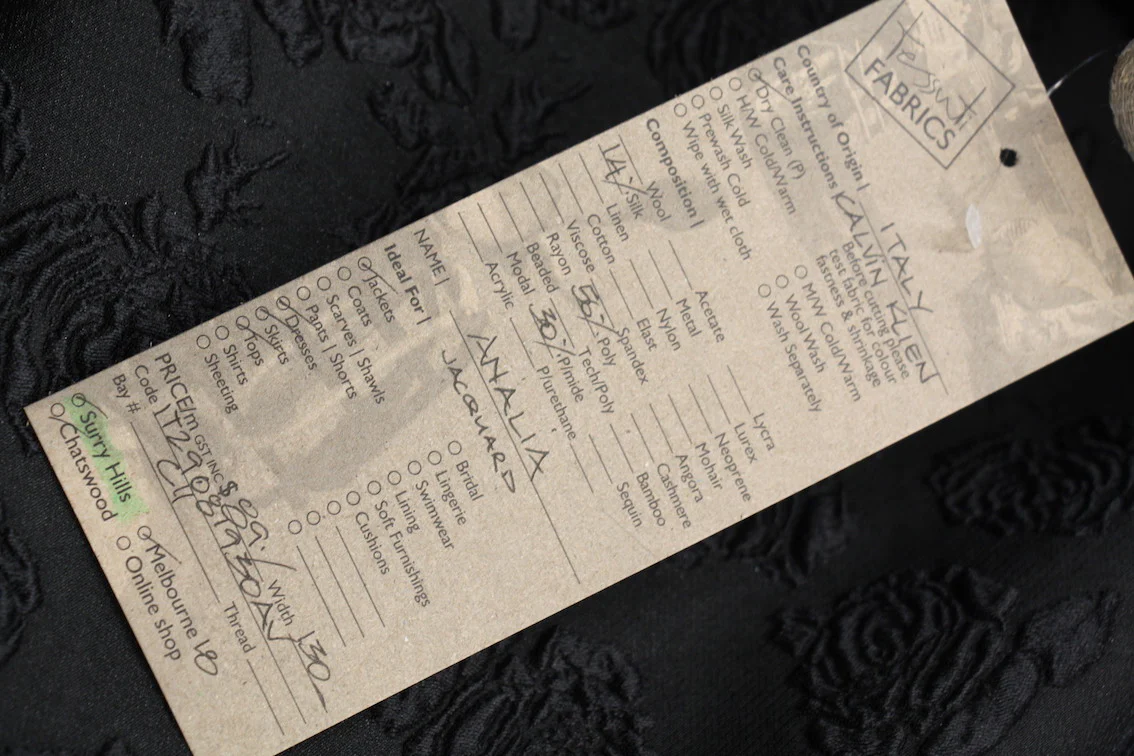 Tessuti
FABRICS
Country of Origin | ITALY
Care Instructions KALVIN KLIEN
Dry Clean (P)
H/W Cold/Warm
Silk Wash
Prewash Cold
Wipe with wet cloth
Before cutting please
test fabric for colour
fastness & shrinkage
M/W Cold/Warm
Wool Wash
Wash Separately
Composition |
Wool
14% Silk
Linen
Cotton
Viscose
Rayon
Beaded
Modal
Acrylic
Acetate
Metal
Nylon
Elast
Spandex
Poly
Tech/Poly
30% P/mide
P/urethane
Lycra
Lurex
Neoprene
Mohair
Angora
Cashmere
Bamboo
Sequin
NAME | ANALIA
JACQUARD
Ideal For |
Jackets
Coats
Scarves | Shawls
Pants | Shorts
Dresses
Skirts
Tops
Shirts
Sheeting
Bridal
Lingerie
Swimwear
Lining
Soft Furnishings
Cushions
PRICE/m GST INC $89. Width 130
Code |
Bay # Thread
Surry Hills
Chatswood
Melbourne
Online shop